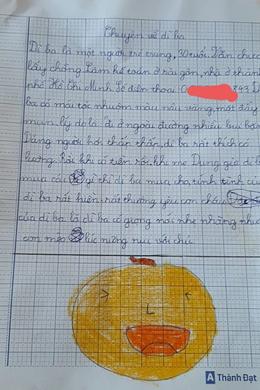 Chuyện về dì ba
Dì ba là một người trẻ trung, 30 tuổi. Vẫn chưa
lấy chồng. Làm kế toán ở sài gòn, nhà ở thành
phố Hồ Chí Minh. Số điện thoại 0 893. Dì
ba có mái tóc nhuộm màu nâu vàng, một đầy
mụn lý do là đi ở ngoài đường nhiều bụi bặm
Dáng người hơi thấp, dì ba rất thích có
lương. Rồi khi có tiền rồi, khi mẹ Dung gia đi
mua cái gì thì dì ba mua cho, tính tình của
dì ba rất hiền, rất thương yêu con cháu
của dì ba là dì có giọng nói nhẹ nhàng như
con mèo lúc nũng nịu với chú.
Thành Đạt